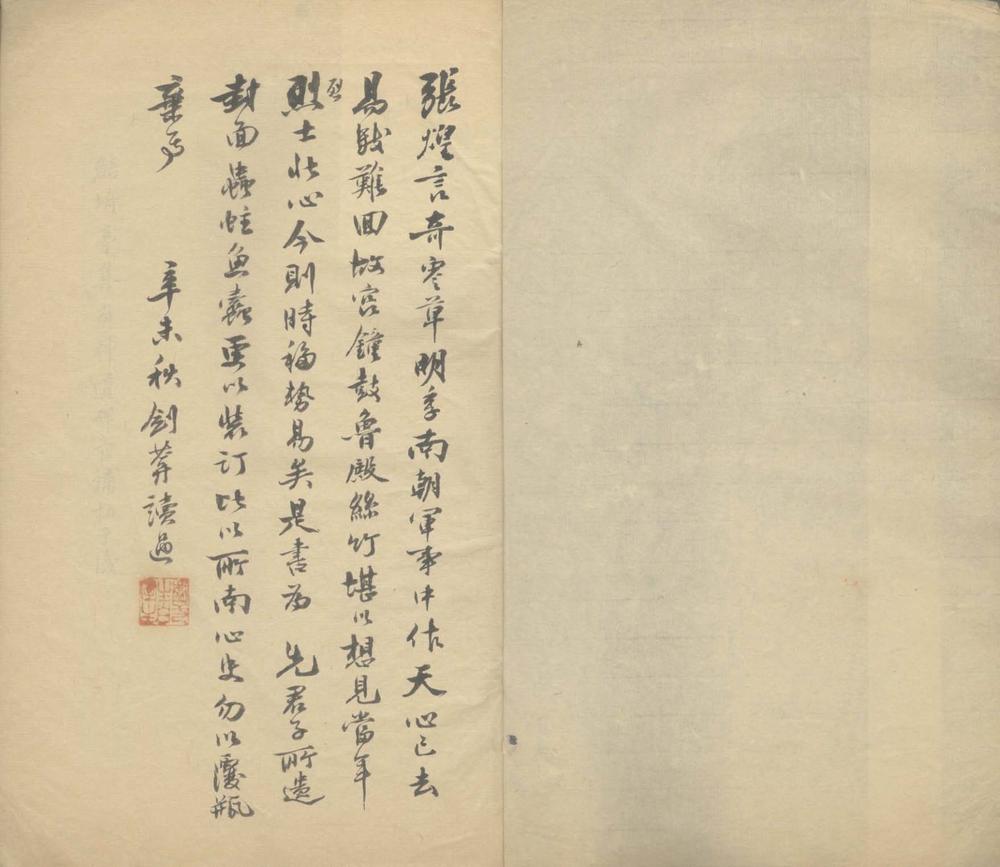 張煌言奇零草明季南朝軍事中作天心已去
易談難回故宮鐘鼓魯殿絲竹堪以想見當年
烈士壯心今則時移勢易矣是書為 先君子所遺
封面蟲蛀魚蠹更以裝訂比以所南心史勿以覆瓿
棄焉 辛未秋劍莽讀過